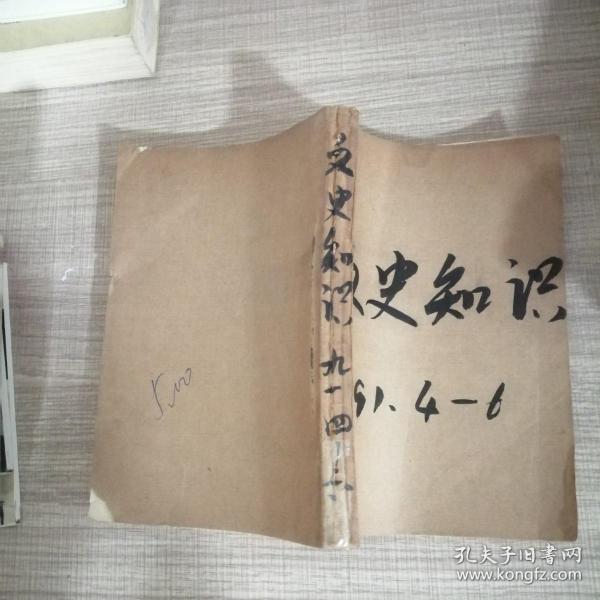 文史知识
91.4-6
文史知识 九一 四-六
5.00
孔夫子旧书网
www.kongfz.com